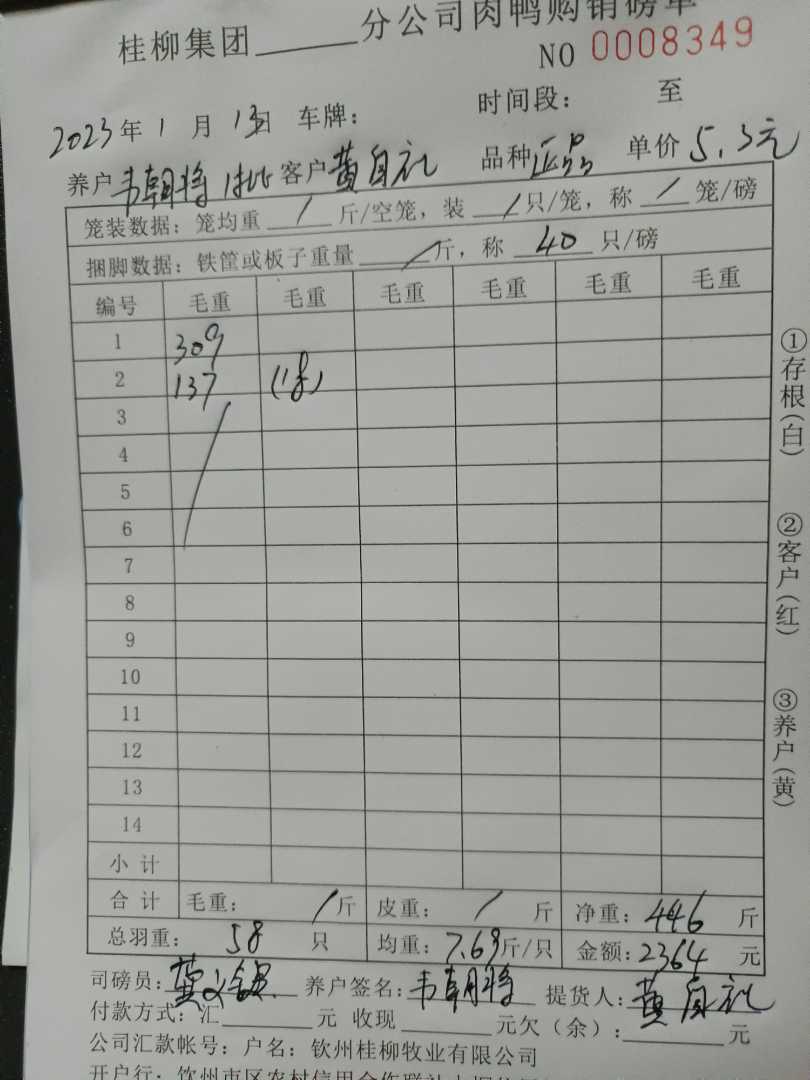 桂柳集团______分公司肉鸭购销磅单
NO 0008349
2023年1月13日 车牌: 时间段: 至
养户韦朝将 1批 客户黄自礼 品种正品 单价5.3元
笼装数据: 笼均重 / 斤/空笼, 装 / 只/笼, 称 / 笼/磅
捆脚数据: 铁筐或板子重量 / 斤, 称 40 只/磅
编号 毛重 毛重 毛重 毛重 毛重 毛重
1 309
2 137
3
4
5
6
7
8
9
10
11
12
13
14
小计
合计 毛重: / 斤 皮重: / 斤 净重: 446 斤
总羽重: 58 只 均重: 7.69斤/只 金额: 2364 元
司磅员: 养户签名: 韦朝将 提货人: 黄自礼
付款方式: 汇______元 收现______元欠(余):______元
公司汇款帐号: 户名: 钦州桂柳牧业有限公司
开户行: 钦州市区农村信用合作联社
①存根(白) ②客户(红) ③养户(黄)